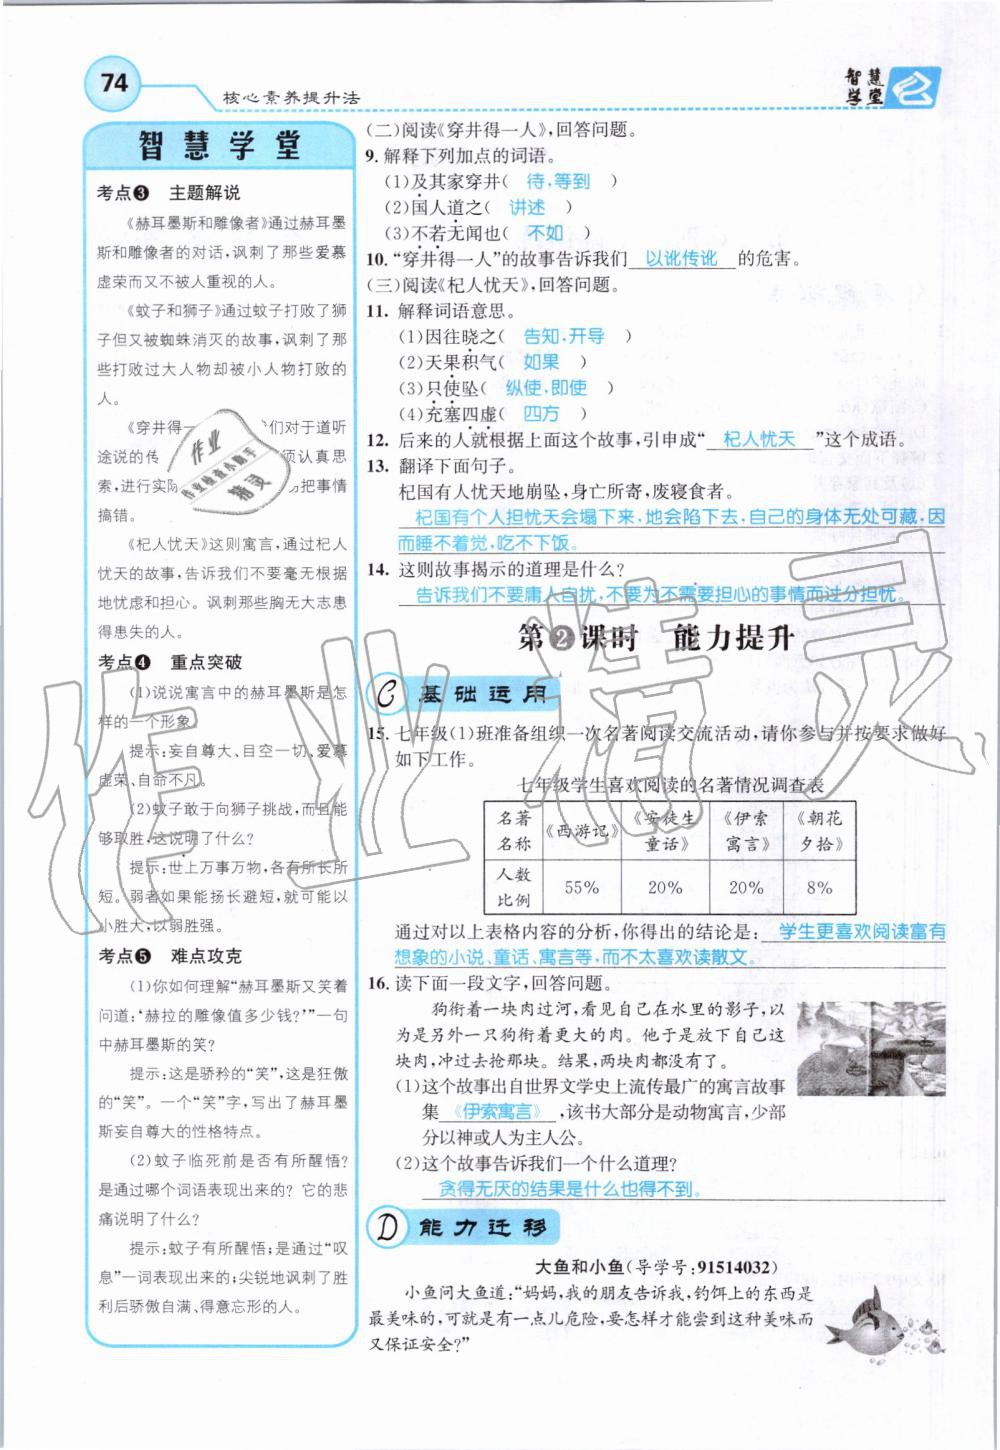 74
核心素养提升法
智慧学堂
智慧学堂
考点❸ 主题解说
《赫耳墨斯和雕像者》通过赫耳墨
斯和雕像者的对话,讽刺了那些爱慕
虚荣而又不被人重视的人。
《蚊子和狮子》通过蚊子打败了狮
子但又被蜘蛛消灭的故事,讽刺了那
些打败过大人物却被小人物打败的
人。
《穿井得一
们对于道听
途说的传
须认真思
索,进行实际
为把事情
搞错。
《杞人忧天》这则寓言,通过杞人
忧天的故事,告诉我们不要毫无根据
地忧虑和担心。讽刺那些胸无大志患
得患失的人。
考点❹ 重点突破
(1)说说寓言中的赫耳墨斯是怎
样的一个形象。
提示:妄自尊大、目空一切、爱慕
虚荣、自命不凡。
(2)蚊子敢于向狮子挑战,而且能
够取胜,这说明了什么?
提示:世上万事万物,各有所长所
短。弱者如果能扬长避短,就可能以
小胜大,以弱胜强。
考点❺ 难点攻克
(1)你如何理解“赫耳墨斯又笑着
问道:‘赫拉的雕像值多少钱?’”一句
中赫耳墨斯的笑?
提示:这是骄矜的“笑”,这是狂傲
的“笑”。一个“笑”字,写出了赫耳墨
斯妄自尊大的性格特点。
(2)蚊子临死前是否有所醒悟?
是通过哪个词语表现出来的? 它的悲
痛说明了什么?
提示:蚊子有所醒悟;是通过“叹
息”一词表现出来的;尖锐地讽刺了胜
利后骄傲自满、得意忘形的人。
(二)阅读《穿井得一人》,回答问题。
9. 解释下列加点的词语。
(1)及其家穿井( 待,等到 )
(2)国人道之( 讲述 )
(3)不若无闻也( 不如 )
10. “穿井得一人”的故事告诉我们 以讹传讹 的危害。
(三)阅读《杞人忧天》,回答问题。
11. 解释词语意思。
(1)因往晓之( 告知,开导 )
(2)天果积气( 如果 )
(3)只使坠( 纵使,即使 )
(4)充塞四虚( 四方 )
12. 后来的人就根据上面这个故事,引申成“ 杞人忧天 ”这个成语。
13. 翻译下面句子。
杞国有人忧天地崩坠,身亡所寄,废寝食者。
杞国有个人担忧天会塌下来,地会陷下去,自己的身体无处可藏,因
而睡不着觉,吃不下饭。
14. 这则故事揭示的道理是什么?
告诉我们不要庸人自扰,不要为不需要担心的事情而过分担忧。
第❷课时 能力提升
C 基础运用
15. 七年级(1)班准备组织一次名著阅读交流活动,请你参与并按要求做好
如下工作。
七年级学生喜欢阅读的名著情况调查表
名著名称 《西游记》 《安徒生童话》 《伊索寓言》 《朝花夕拾》
人数比例 55% 20% 20% 8%
通过对以上表格内容的分析,你得出的结论是: 学生更喜欢阅读富有
想象的小说、童话、寓言等,而不太喜欢读散文。
16. 读下面一段文字,回答问题。
狗衔着一块肉过河,看见自己在水里的影子,以
为是另外一只狗衔着更大的肉。他于是放下自己这
块肉,冲过去抢那块。结果,两块肉都没有了。
(1)这个故事出自世界文学史上流传最广的寓言故事
集 《伊索寓言》 ,该书大部分是动物寓言,少部
分以神或人为主人公。
(2)这个故事告诉我们一个什么道理?
贪得无厌的结果是什么也得不到。
D 能力迁移
大鱼和小鱼(导学号:91514032)
小鱼问大鱼道:“妈妈,我的朋友告诉我,钓饵上的东西是
最美味的,可就是有一点儿危险,要怎样才能尝到这种美味而
又保证安全?”
作业
作业检查小助手
精灵
作业精灵